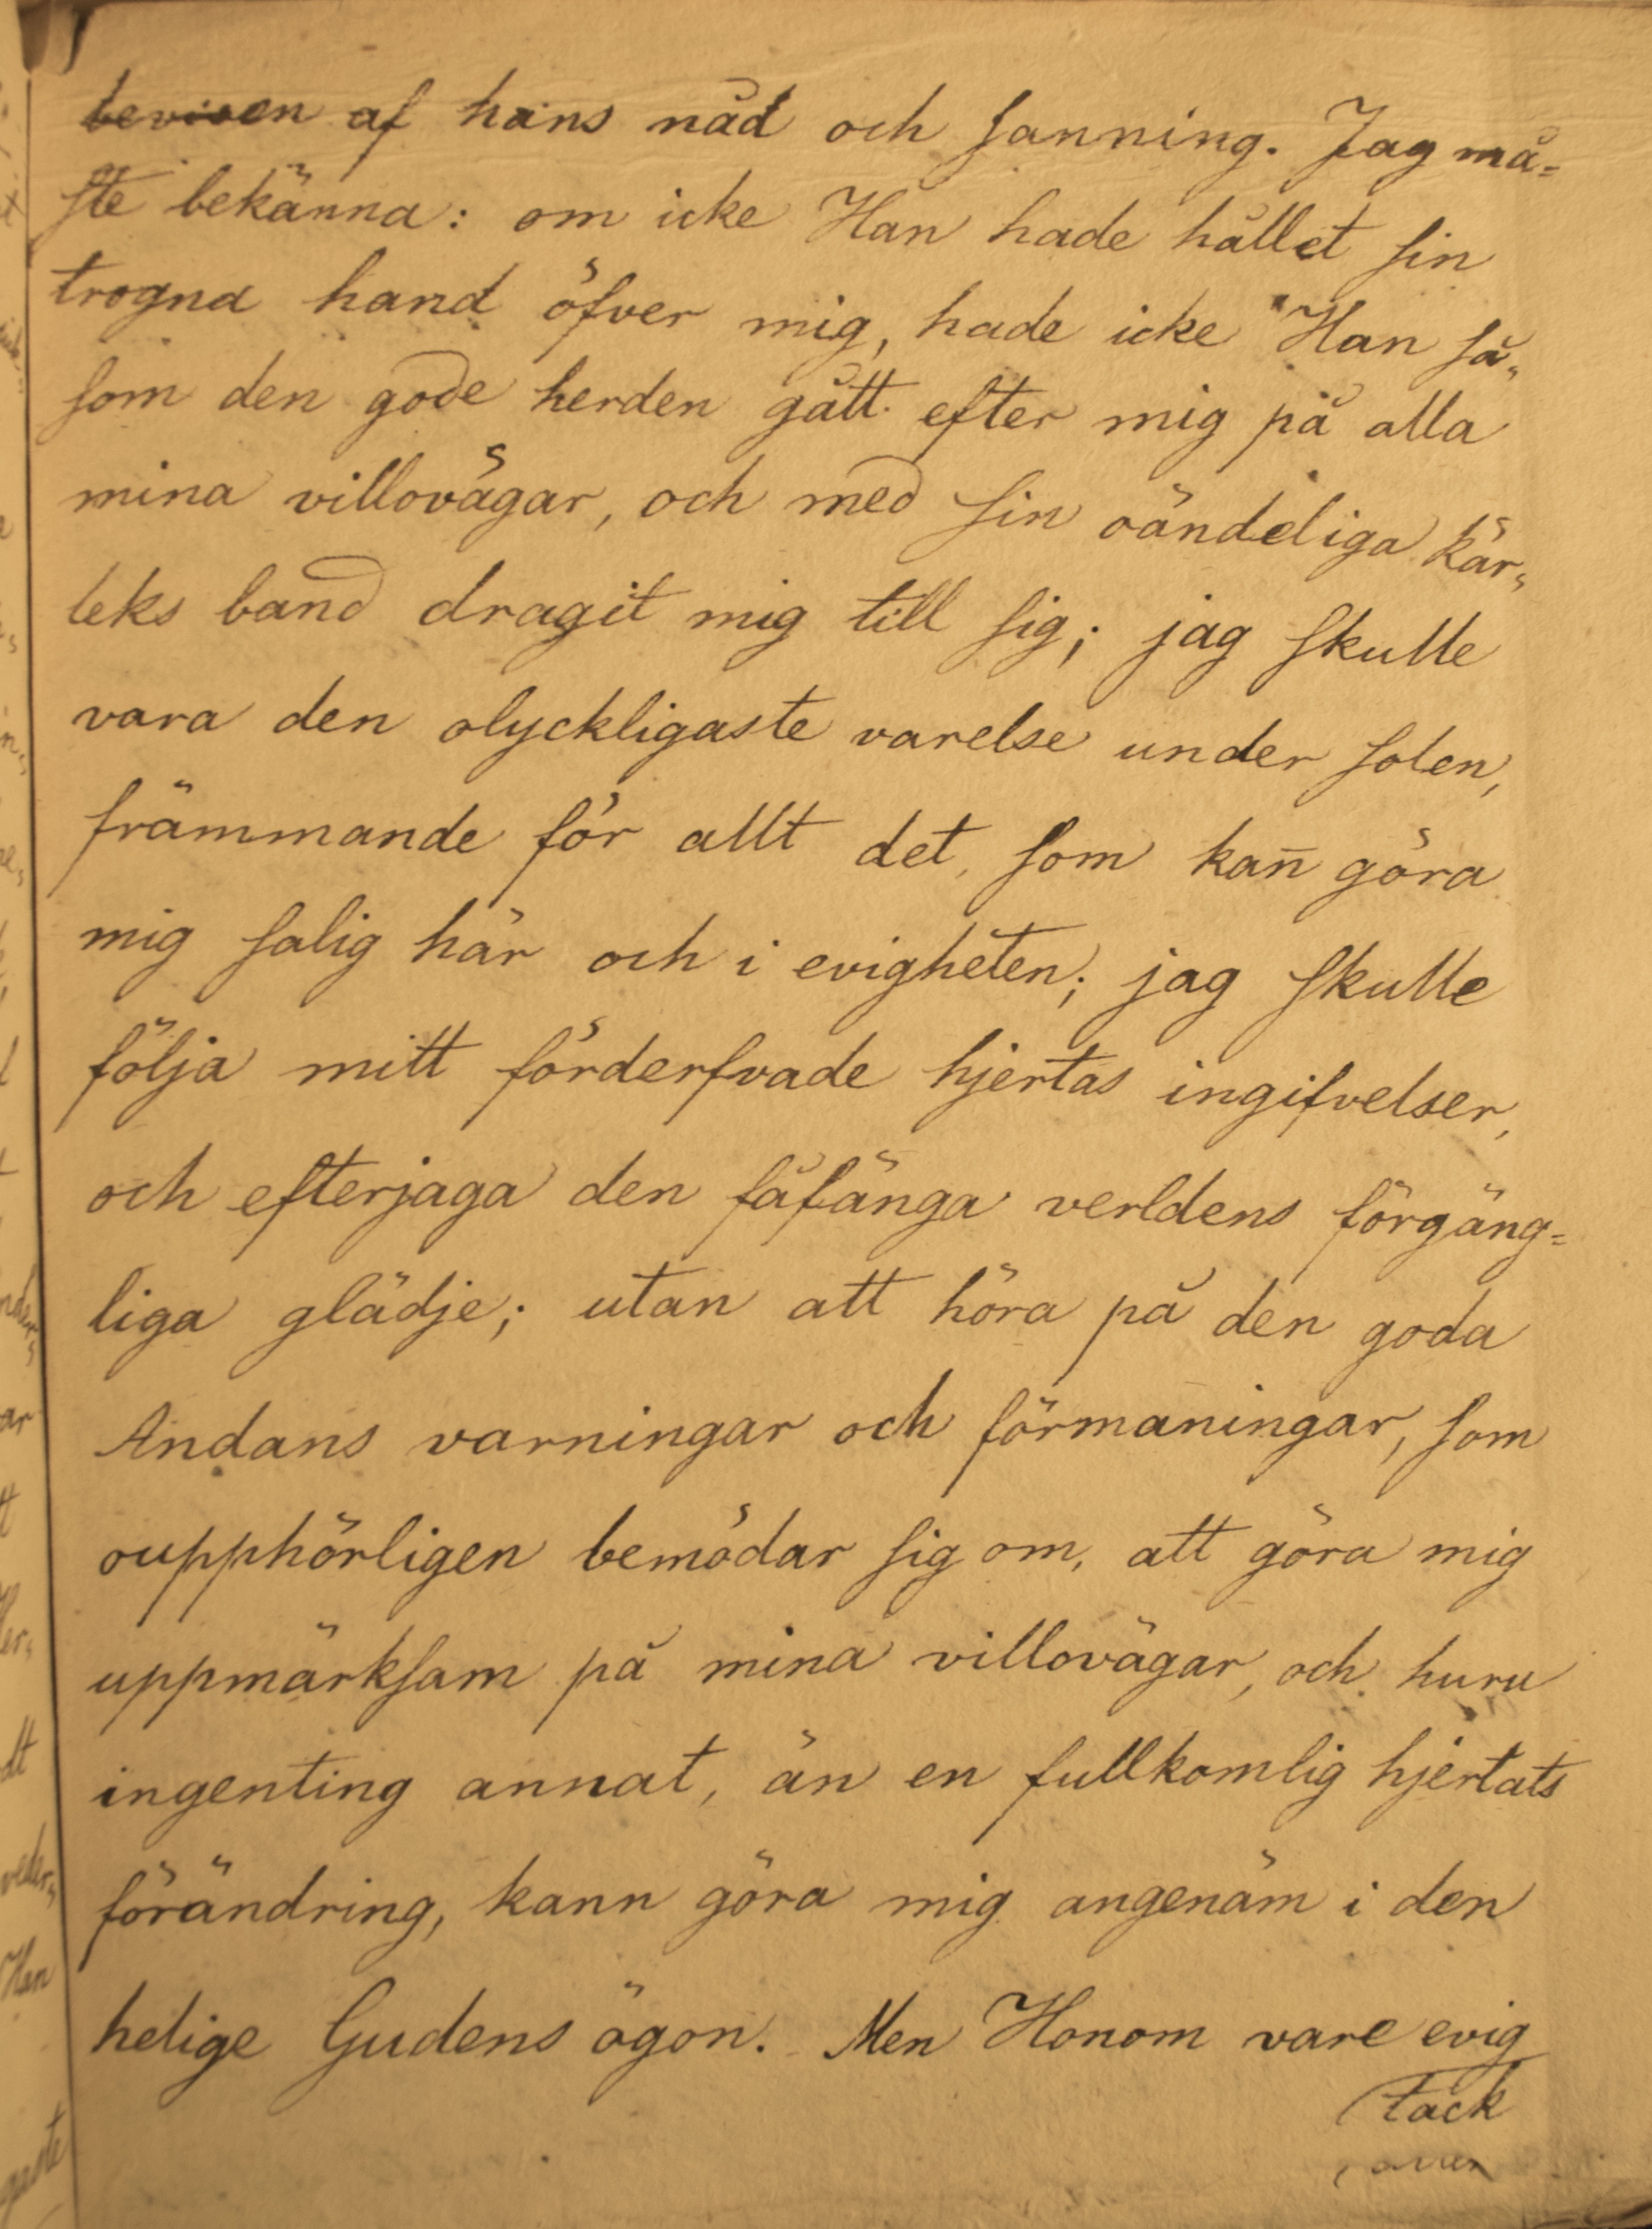 bevisen af hans nåd och sanning. Jag må=
ste bekänna: om icke Han hade hållet sin
trogna hand öfver mig, hade icke Han så=
som den gode herden gått efter mig på alla
mina villovägar, och med sin oändeliga kär=
leks band dragit mig till sig; jag skulle
vara den olyckligaste varelse under solen,
främmande för allt det, som kan̄ göra
mig salig här och i evigheten; jag skulle
följa mitt förderfvade hjertas ingifvelser,
och efterjaga den fåfänga verldens förgäng=
liga glädje; utan att höra på den goda
Andans varningar och förmaningar, som
oupphörligen bemödar sig om, att göra mig
uppmärksam på mina villovägar, och huru
ingenting annat, än en fullkomlig hjertats
förändring, kann göra mig angenäm i den
helige Gudens ögon. Men Honom vare evig
tack